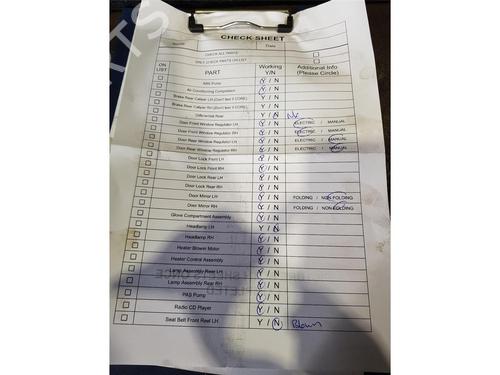 CHECK SHEET
Name Date
CHECK ALL PARTS
ONLY CHECK PARTS ON LIST
ON LIST PART Working Y/N Additional Info (Please Circle)
ABS Pump Y / N
Air Conditioning Compressor Y / N
Brake Rear Caliper LH (Don't Sell If CORE) Y / N
Brake Rear Caliper RH (Don't Sell If CORE) Y / N
Differential Rear Y / N
Door Front Window Regulator LH Y / N ELECTRIC / MANUAL
Door Front Window Regulator RH Y / N ELECTRIC / MANUAL
Door Rear Window Regulator LH Y / N ELECTRIC / MANUAL
Door Rear Window Regulator RH Y / N ELECTRIC / MANUAL
Door Lock Front LH Y / N
Door Lock Front RH Y / N
Door Lock Rear LH Y / N
Door Lock Rear RH Y / N
Door Mirror LH Y / N FOLDING / NON FOLDING
Door Mirror RH Y / N FOLDING / NON FOLDING
Glove Compartment Assembly Y / N
Headlamp LH Y / N
Headlamp RH Y / N
Heater Blower Motor Y / N
Heater Control Assembly Y / N
Lamp Assembly Rear LH Y / N
Lamp Assembly Rear RH Y / N
PAS Pump Y / N
Radio CD Player Y / N
Seat Belt Front Reel LH Y / N Blown